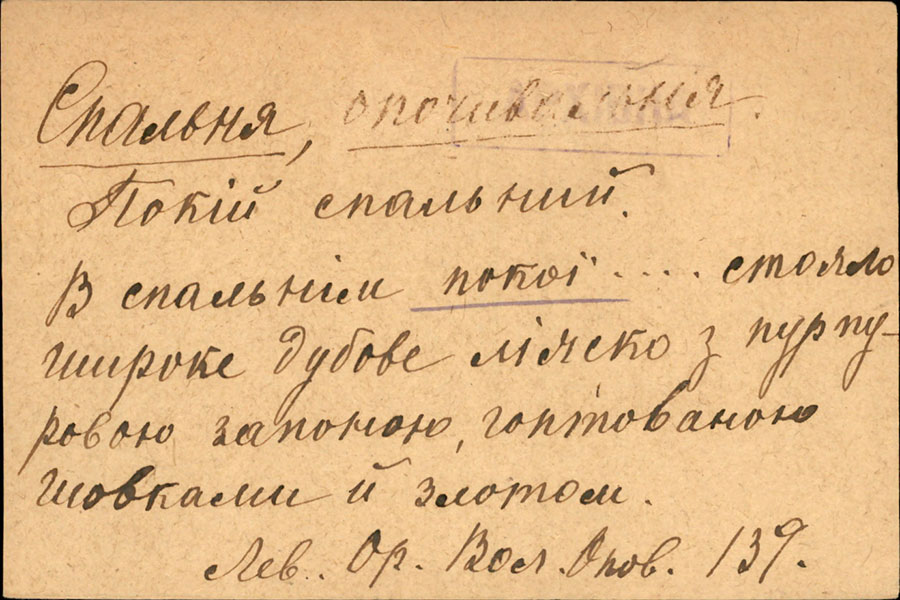 Спальня, опочивальнія.
Покій спальний.
В спальнім покої .... стояло
широке дубове ліжско з пурпу-
ровою запоною, гоптованою
шовками й злотом.
Лев. Ор. Вол. Опов. 139.